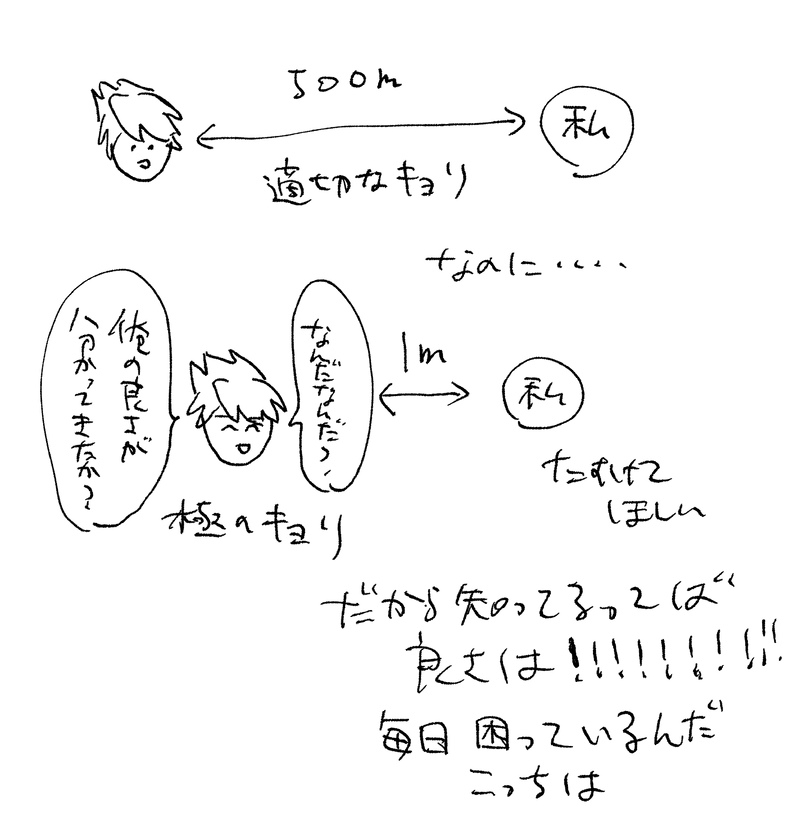 500m
私
適切なキョリ
なのに・・・・
俺の良さが
分かってきたか？
なんだなんだ？
1m
私
極のキョリ
たすけて
ほしい
だから知ってるってば
良さは!!!!!!!!!!
毎日困っているんだ
こっちは